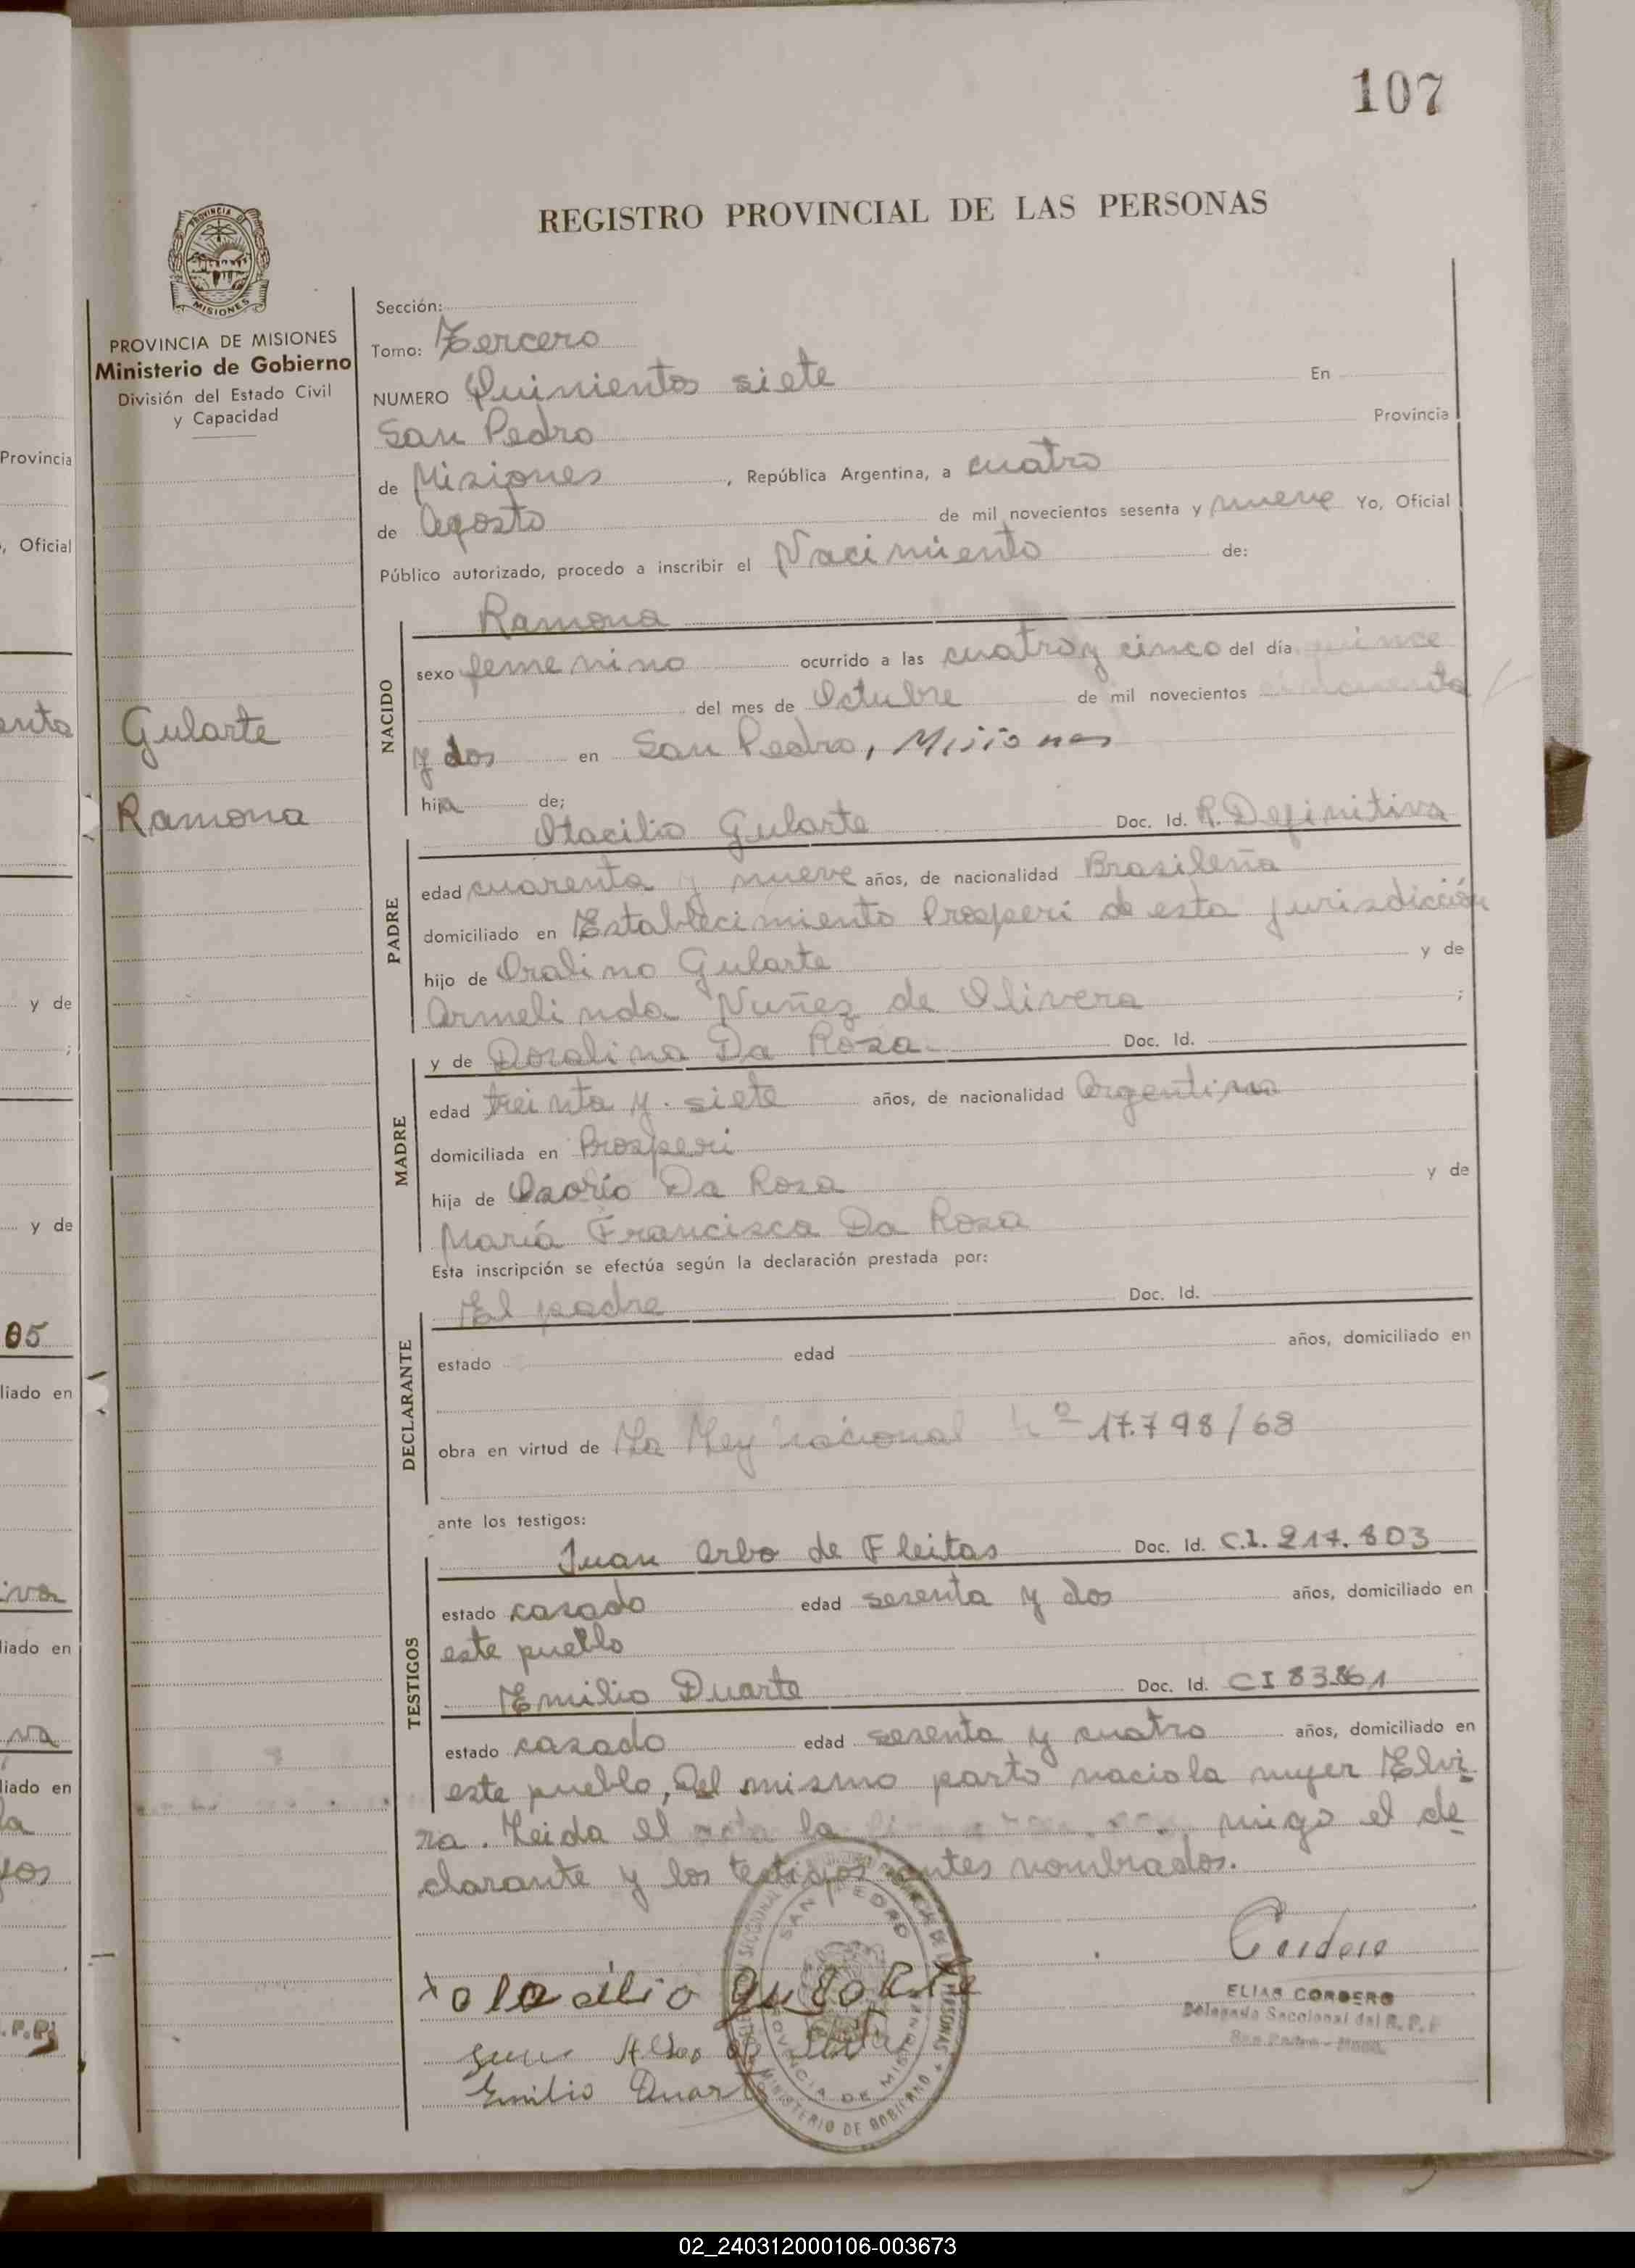 107
REGISTRO PROVINCIAL DE LAS PERSONAS
PROVINCIA DE
MISIONES
PROVINCIA DE MISIONES
Ministerio de Gobierno
División del Estado Civil
y Capacidad
Gularte
Ramona
Sección:
Tomo: Tercero
NUMERO Quinientos siete En
San Pedro Provincia
de Misiones, República Argentina, a cuatro
de Agosto de mil novecientos sesenta y nueve Yo, Oficial
Público autorizado, procedo a inscribir el Nacimiento de:
NACIDO
Ramona
sexo femenino ocurrido a las cuatro y cinco del día quince
del mes de Octubre de mil novecientos cincuenta
y dos en San Pedro, Misiones
hija de;
PADRE
Otacilio Gularte Doc. Id. R. Definitiva
edad cuarenta y nueve años, de nacionalidad Brasileña
domiciliado en Establecimiento Prosperi de esta jurisdicción
hijo de Oralino Gularte y de
Armelinda Nuñez de Olivera ;
MADRE
y de Doralina Da Roza. Doc. Id.
edad treinta y siete años, de nacionalidad Argentina
domiciliada en Prosperi
hija de Osorio Da Rosa y de
María Francisca Da Rosa
Esta inscripción se efectúa según la declaración prestada por:
DECLARANTE
El padre Doc. Id.
estado edad años, domiciliado en
obra en virtud de La Ley Nacional Nº 17.798/68
ante los testigos:
TESTIGOS
Juan Arbo de Fleitas Doc. Id. C.I. 217.803
estado casado edad sesenta y dos años, domiciliado en
este pueblo
Emilio Duarte Doc. Id. CI 83.861
estado casado edad sesenta y cuatro años, domiciliado en
este pueblo, Del mismo parto nacio la mujer Elvi
ra. Leida el acta la migo el de
clarante y los testigos antes nombrados.
SAN PEDRO
PROVINCIA DE MISIONES
MINISTERIO DE GOBIERNO
Cordero
ELIAS CORDERO
Delegado Seccional del R. P. P.
San Pedro - Mnes.
Emilio Duarte
Provincia
, Oficial
y de
;
y de
05
liado en
liado en
liado en
02_240312000106-003673